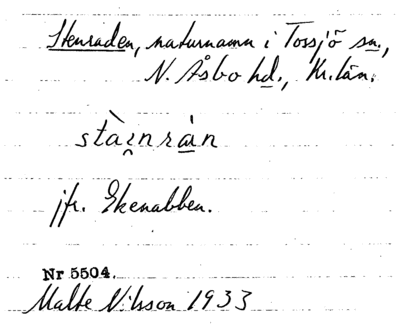 Stenraden, naturnamn i Tossjö sn.,
N. Åsbo hd., Kr. län.
stài̯nràn
jfr. Ekenabben.
Nr 5504.
Malte Nilsson 1933